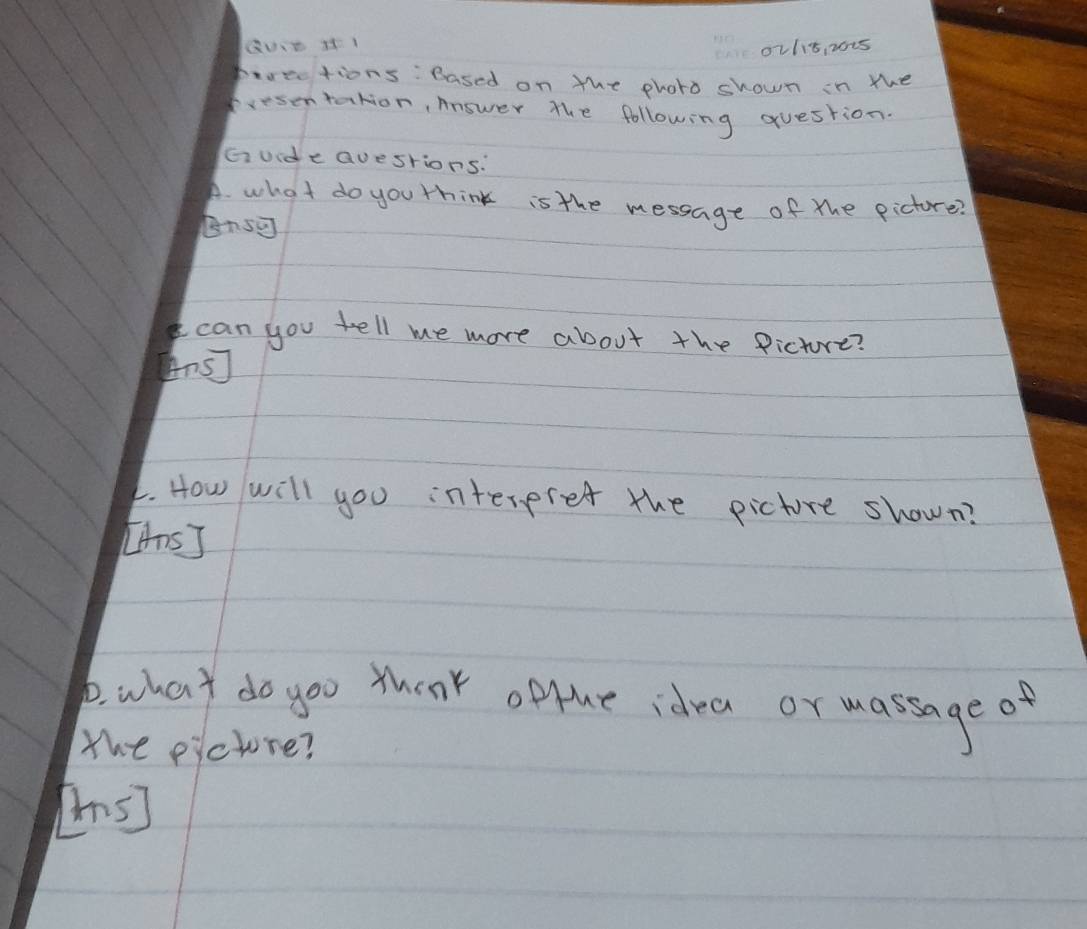 Quiz #1
NO.
DATE 02/18,2025
Directions: Based on the photo shown in the
presentation, Answer the following question.
Guide Questions:
A. what do you think is the message of the picture?
[Ans]
can you tell me more about the Picture?
[Ans]
C. How will you interpret the picture shown?
[Ans]
D. what do you think of the idea or massage of
the picture?
[Ans]